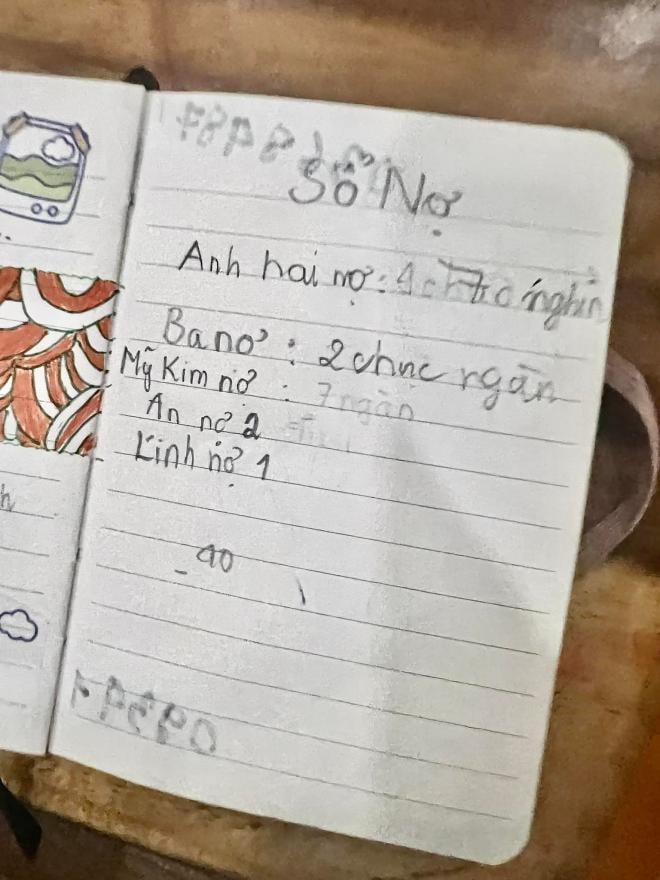 Sổ Nợ
Anh hai nợ: nghìn
Ba nợ: 2 chục ngàn
Mỹ Kim nợ: 7 ngàn
An nợ 2
Linh nợ 1
- 90